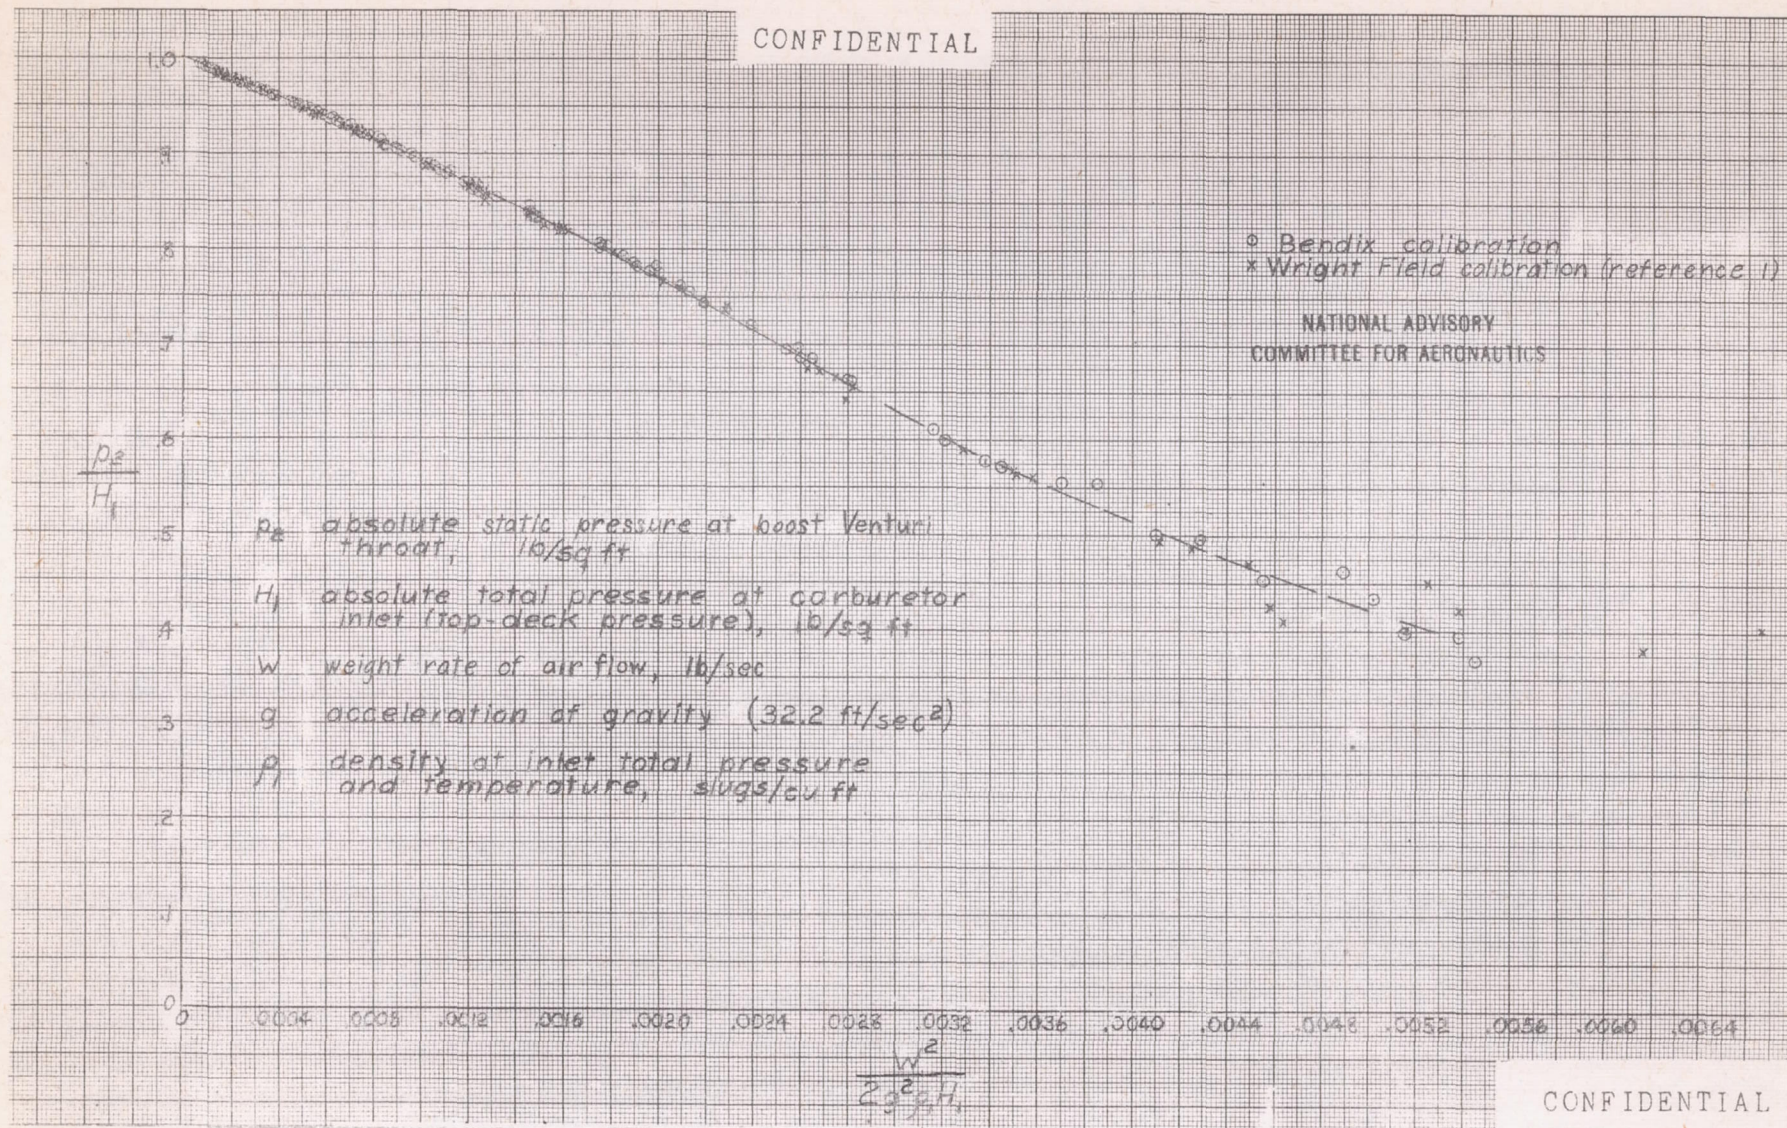 CONFIDENTIAL
1.0
.9
.8
.7
.6
.5
.4
.3
.2
.1
0
p2
H1
o Bendix calibration
x Wright Field calibration (reference 1)
NATIONAL ADVISORY
COMMITTEE FOR AERONAUTICS
p2 absolute static pressure at boost Venturi
throat, lb/sq ft
H1 absolute total pressure at carburetor
inlet (top-deck pressure), lb/sq ft
W weight rate of air flow, lb/sec
g acceleration of gravity (32.2 ft/sec²)
ρ1 density at inlet total pressure
and temperature, slugs/cu ft
0 .0004 .0008 .0012 .0016 .0020 .0024 .0028 .0032 .0036 .0040 .0044 .0048 .0052 .0056 .0060 .0064
W²
2g²ρ1H1
CONFIDENTIAL